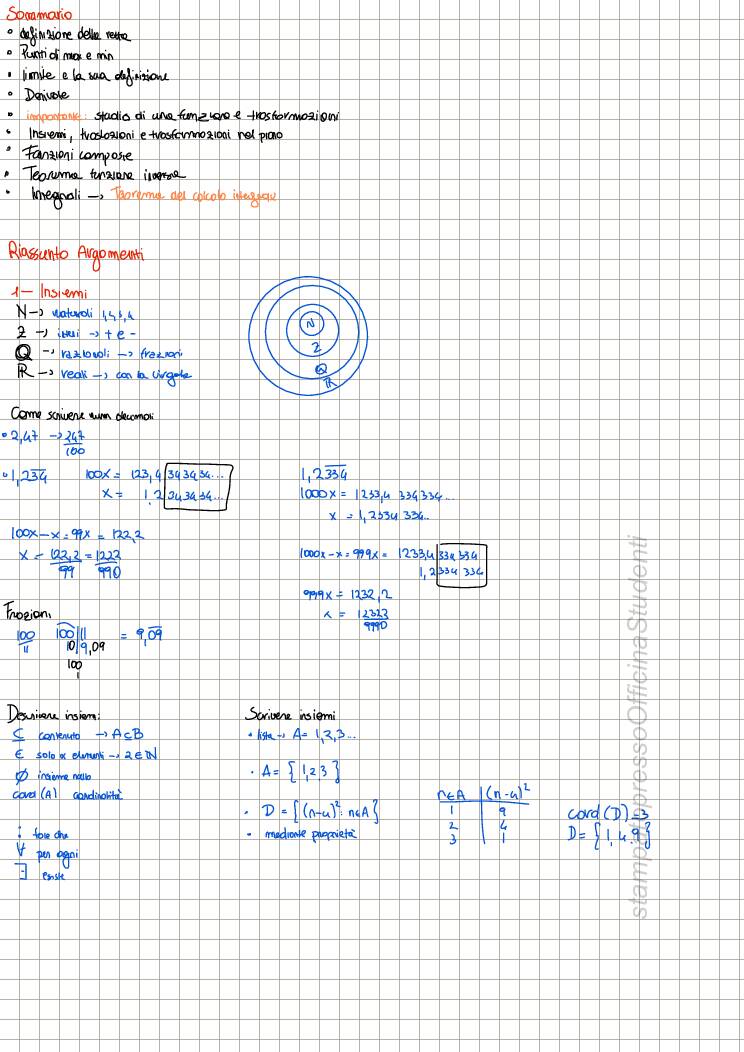 Sommario
• definizione della retta
• Punti di max e min
• limite e la sua definizione
• Derivate
• importante: studio di una funzione e trasformazioni
• Insiemi, traslazioni e trasformazioni nel piano
• Funzioni composte
• Teorema funzione inversa
• Integrali → Teorema del calcolo integrale
Riassunto Argomenti
1 — Insiemi
N → naturali
Z → interi → + e -
Q → razionali → frazioni
R → reali → con la virgola
N
Z
Q
R
Come scrivere num decimali
• 2,47 → 247/100
• 1,2̅3̅4̅ 100x = 123,4 34 34 34...
x = 1,2 34 34 34...
100x - x = 99x = 122,2
x = 122,2/99 = 1222/990
1,2̅3̅3̅4̅
1000x = 1233,4 334 334...
x = 1,2334 334..
1000x - x = 999x = 1233,4 334 334
1,2 334 334
999x = 1232,2
x = 12322/9990
Frazioni
100/11 100 | 11 = 9,0̅9̅
10 9,09
100
1
Descrivere insiemi:
⊆ contenuto → A⊆B
∈ solo x elementi → 2 ∈ N
∅ insieme nullo
card (A) cardinalità
: tale che
∀ per ogni
∃ esiste
Scrivere insiemi
• lista → A = 1, 2, 3...
• A = {1,2 3}
• D = {(n-4)² : n∈A}
• mediante proprietà
n∈A | (n-4)²
1 | 9
2 | 4
3 | 1
card (D) = 3
D = {1, 4, 9}
stampatopressoOfficinaStudenti